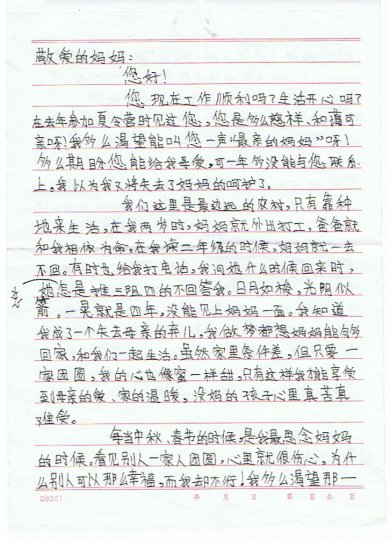 敬爱的妈妈：
您好！
您现在工作顺利吗？生活开心吗？
在去年参加夏令营时见过您，您是多么慈祥，和蔼可
亲呀！我多么渴望能叫您一声“最亲的妈妈”呀！
多么期盼您能给我母爱，可一年多没能与您联系
上，我以为我又将失去了妈妈的呵护了。
我们这里是最边远的农村，只有靠种
地来生活，在我两岁时，妈妈就外出打工，爸爸就
和我相依为命，在我读二年级的时候，妈妈就一去
不回。有时也给我打电话，我问她什么时候回来时，
她总是推三阻四的不回答我。日月如梭，光阴似
箭。一晃就是四年，没能见上妈妈一面。我知道
我成了一个失去母亲的弃儿，我做梦都想妈妈能够
回家，和我们一起生活。虽然家里条件差，但只要一
家团圆，我的心也像蜜一样甜，只有这样我才能享受
到母亲的爱、家的温暖，没妈的孩子心里真苦真
难受。
每当中秋、春节的时候，是我最思念妈妈
的时候。看见别人一家人团圆，心里就很伤心，为什
么别人可以那么幸福，而我却不行！我多么渴望那一
DS501 年 月 日 第 页 共 页